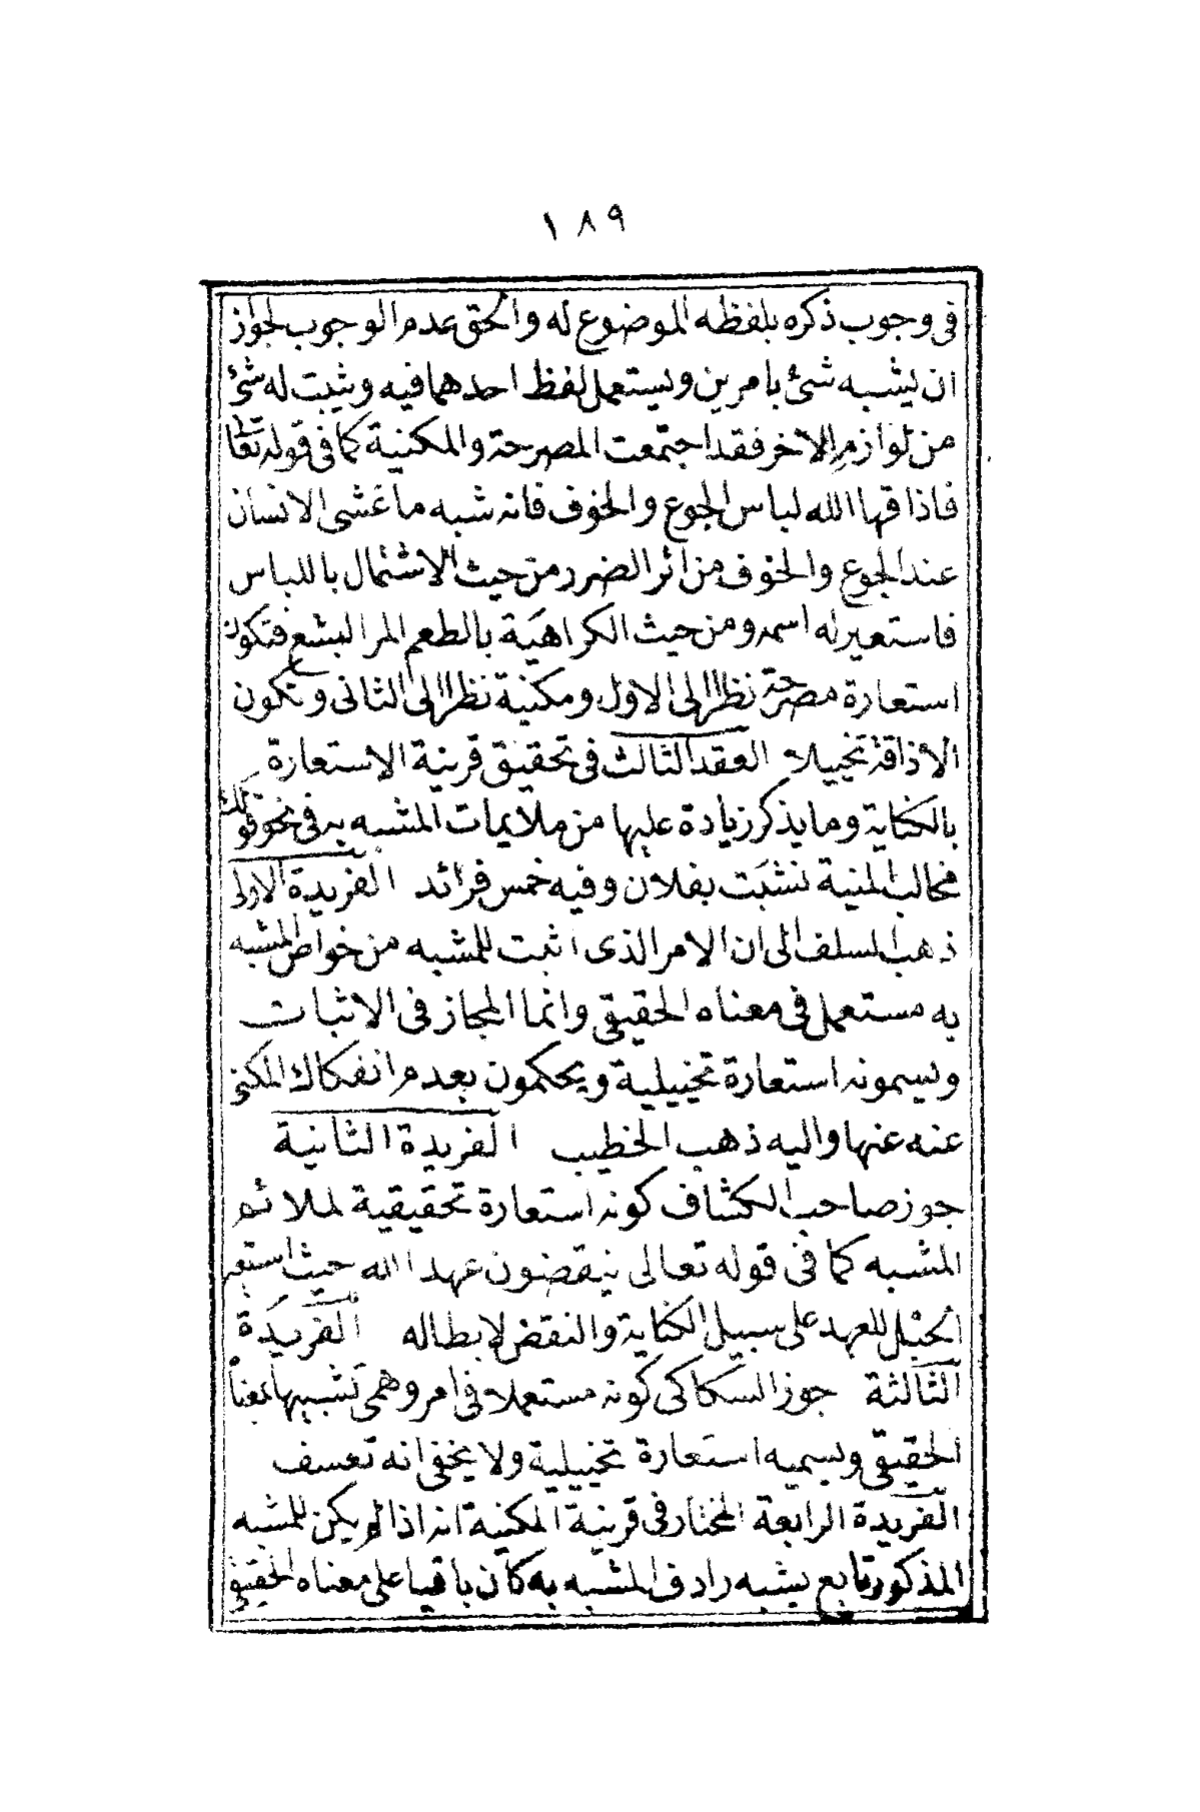 ١٨٩
فى وجوب ذكره بلفظه الموضوع له والحق عدم الوجوب لجواز
ان يشبه شئ بامرين ويستعمل لفظ احدهما فيه ويثبت له شئ
من لوازم الاخر فقد اجتمعت المصرحة والمكنية كما فى قوله تعالى
فاذاقها الله لباس الجوع والخوف فانه شبه ما غشى الانسان
عند الجوع والخوف من اثر الضرر من حيث الاشتمال باللباس
فاستعير له اسمه ومن حيث الكراهية بالطعم المر البشع فتكون
استعارة مصرحة نظرا الى الاول ومكنية نظرا الى الثانى وتكون
الاذاقة تخييلا العقد الثالث فى تحقيق قرينة الاستعارة
بالكناية وما يذكر زيادة عليها من ملايمات المشبه به فى نحو قولك
مخالب المنية نشبت بفلان وفيه خمس فرائد الفريدة الاولى
ذهب السلف الى ان الامر الذى اثبت للمشبه من خواص المشبه
به مستعمل فى معناه الحقيقى وانما المجاز فى الاثبات
ويسمونه استعارة تخييلية ويحكمون بعدم انفكاك المكنى
عنه عنها واليه ذهب الخطيب الفريدة الثانية
جوز صاحب الكشاف كونه استعارة تحقيقية لملائم
المشبه كما فى قوله تعالى ينقضون عهد الله حيث استعير
الحبل للعهد على سبيل الكناية والنقض لابطاله الفريدة
الثالثة جوز السكاكى كونه مستعملا فى امر وهمى تشبيها بمعناه
الحقيقى ويسميه استعارة تخييلية ولا يخفى انه تعسف
الفريدة الرابعة المختار فى قرينة المكنية انه اذا لم يكن للمشبه
المذكور تابع يشبه رادف المشبه به كان باقيا على معناه الحقيقى